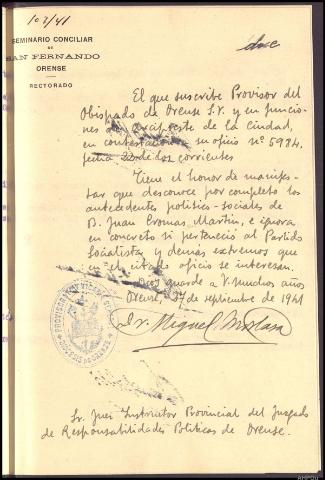 102/41
SEMINARIO CONCILIAR
DE
SAN FERNANDO
ORENSE
RECTORADO
El que suscribe Provisor del
Obispado de Orense S.V. y en funcio-
nes de Arcipreste de la Ciudad,
en contestación a su oficio nº 5984
fecha 22 de los corrientes
Tiene el honor de manifes-
tar que desconoce por completo los
antecedentes politico-sociales de
D. Juan Martin, e ignora
en concreto si perteneció al Partido
Socialista y demás extremos que
en el citado oficio se interesan.
Dios guarde a V. muchos años
Orense, 27 de septiembre de 1941
Dr. Miguel
Sr. Juez Instructor Provincial del Juzgado
de Responsabilidades Politicas de Orense.